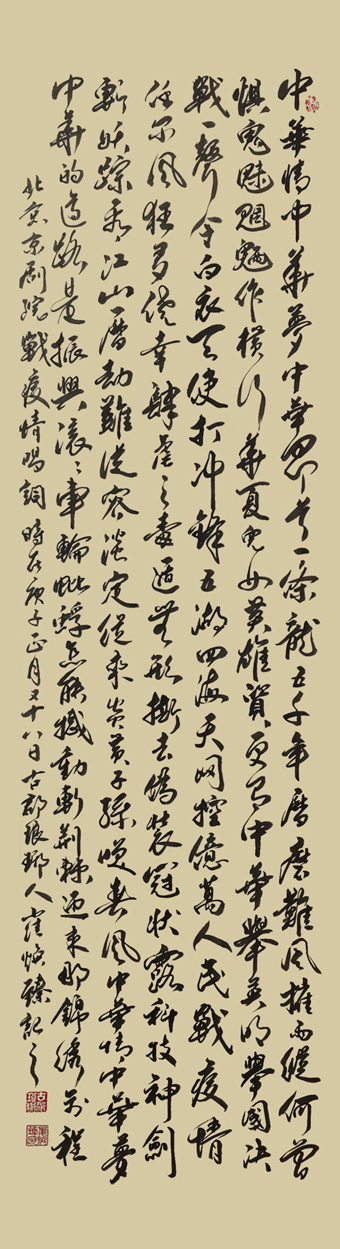 中華情中華夢中華一條龍五千年曆磨難風摧雨縱何曾
懼鬼魅魍魎作橫行華夏兒女英雄質更有中華舉英明舉國決
戰一聲令白衣天使打冲鋒五湖四海天网控億萬人民戰疫情
任尔風狂多僥幸肆虐之毒遁無形撕去偽裝冠狀露科技神劍
斬妖踪看江山曆劫難從容淡定從來炎黄子孫嘆春風中華情中華夢
中華的道路是振興滾滾車輪蚍蜉怎能撼動斬荆棘迎來那錦綉前程
北京京劇院戰疫情唱詞時在庚子正月又十八日古郡琅琊人崔煥臻記之